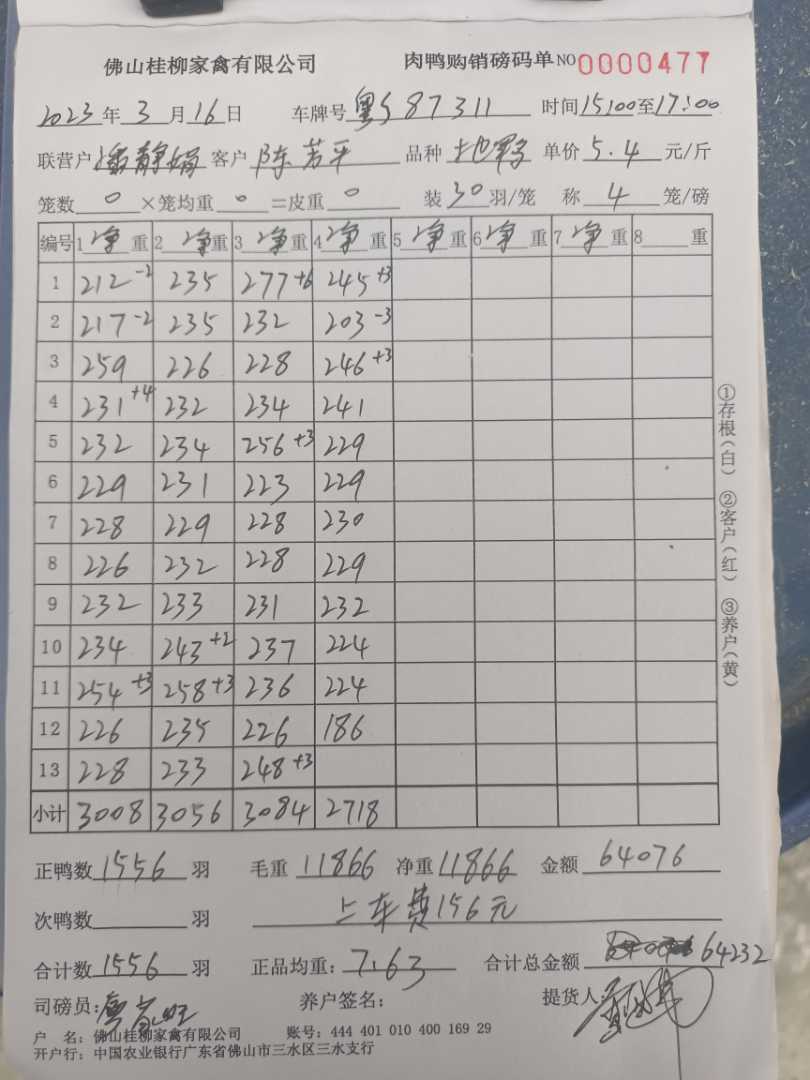 佛山桂柳家禽有限公司 肉鸭购销磅码单 NO 0000477
2023年3月16日 车牌号 粤 87311 时间15:00至17:00
联营户 潘静娟 客户 陈芳平 品种 土也鸭 单价 5.4 元/斤
笼数 0 ×笼均重 0 =皮重 0 装 30 羽/笼 称 4 笼/磅
编号 1 净 重 2 净 重 3 净 重 4 净 重 5 净 重 6 净 重 7 净 重 8 重
1 212 -2 235 277 +6 245 +3
2 217 -2 235 232 203 -3
3 259 226 228 246 +3
4 231 +4 232 234 241
5 232 234 256 +3 229
6 229 231 223 229
7 228 229 228 230
8 226 232 228 229
9 232 233 231 232
10 234 243 +2 237 224
11 254 +3 258 +3 236 224
12 226 235 226 186
13 228 233 248 +3
小计 3008 3056 3084 2718
①存根(白) ②客户(红) ③养户(黄)
正鸭数 1556 羽 毛重 11866 净重 11866 金额 64076
次鸭数 羽 上车费156元
合计数 1556 羽 正品均重: 7.63 合计总金额 64232
司磅员: 养户签名: 提货人:
户 名: 佛山桂柳家禽有限公司 账号: 444 401 010 400 169 29
开户行: 中国农业银行广东省佛山市三水区三水支行